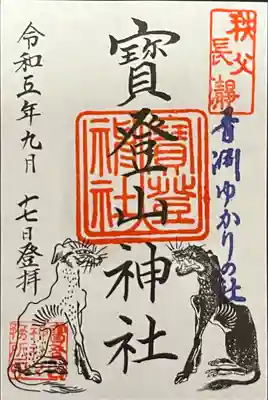 秩父
長瀞
青淵ゆかりの社
寳登山神社
寳登山
神社
令和五年九月 十七日登拝